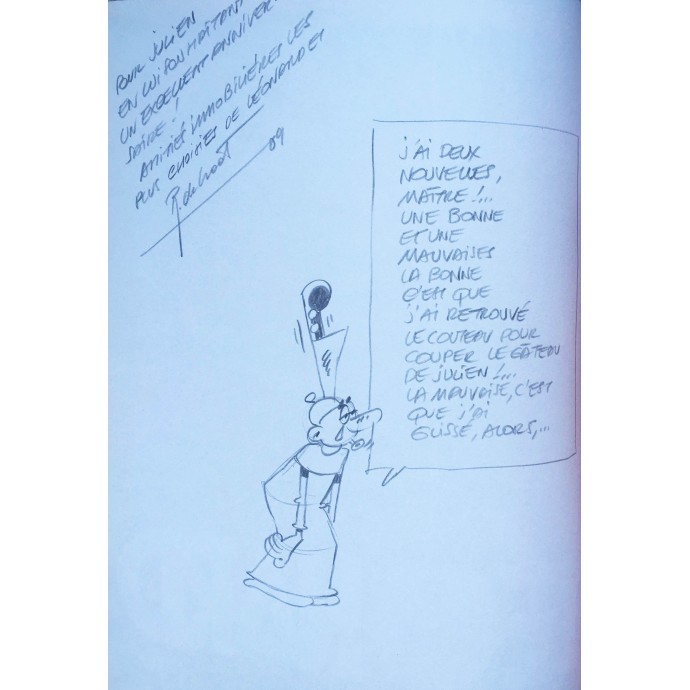 POUR JULIEN
EN LUI SOUHAITANT
UN EXCELLENT ANNIVER-
SAIRE !
AMITIÉS IMMOBILIÈRES LES
PLUS CHOISIES DE LÉONARD ET
R. de Groot 09
J'AI DEUX
NOUVELLES,
MAÎTRE !...
UNE BONNE
ET UNE
MAUVAISES
LA BONNE
C'EST QUE
J'AI RETROUVÉ
LE COUTEAU POUR
COUPER LE GÂTEAU
DE JULIEN !...
LA MAUVAISE, C'EST
QUE J'AI
GLISSÉ, ALORS,...